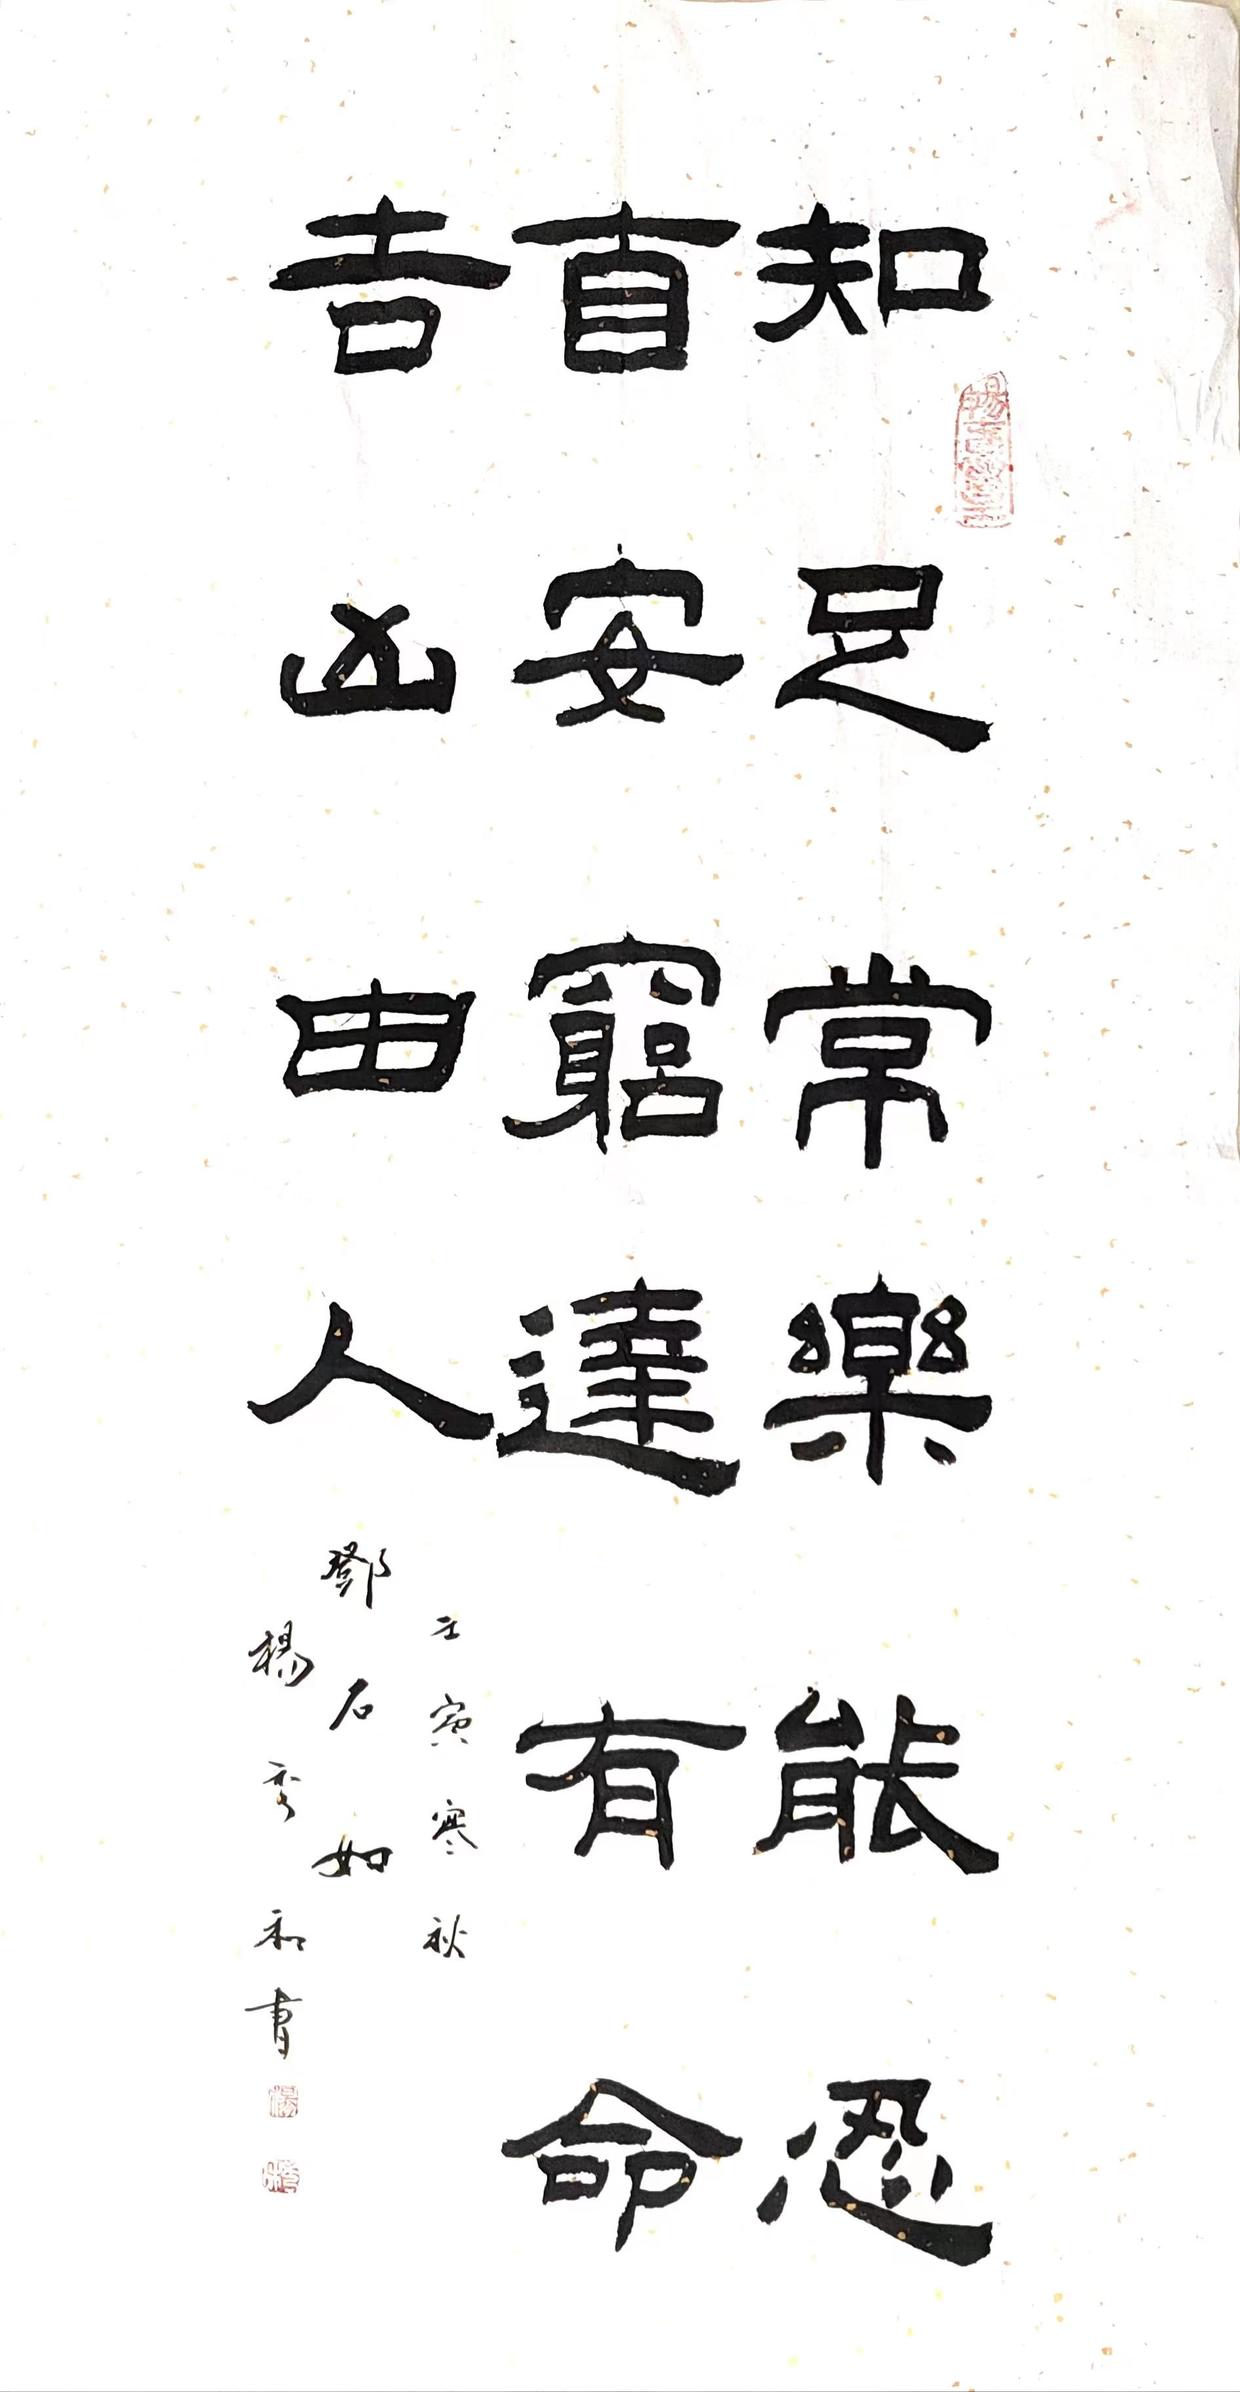 知足常樂能忍
自安窮達有命
吉凶由人
壬寅寒秋
鄧石如
楊秀和書